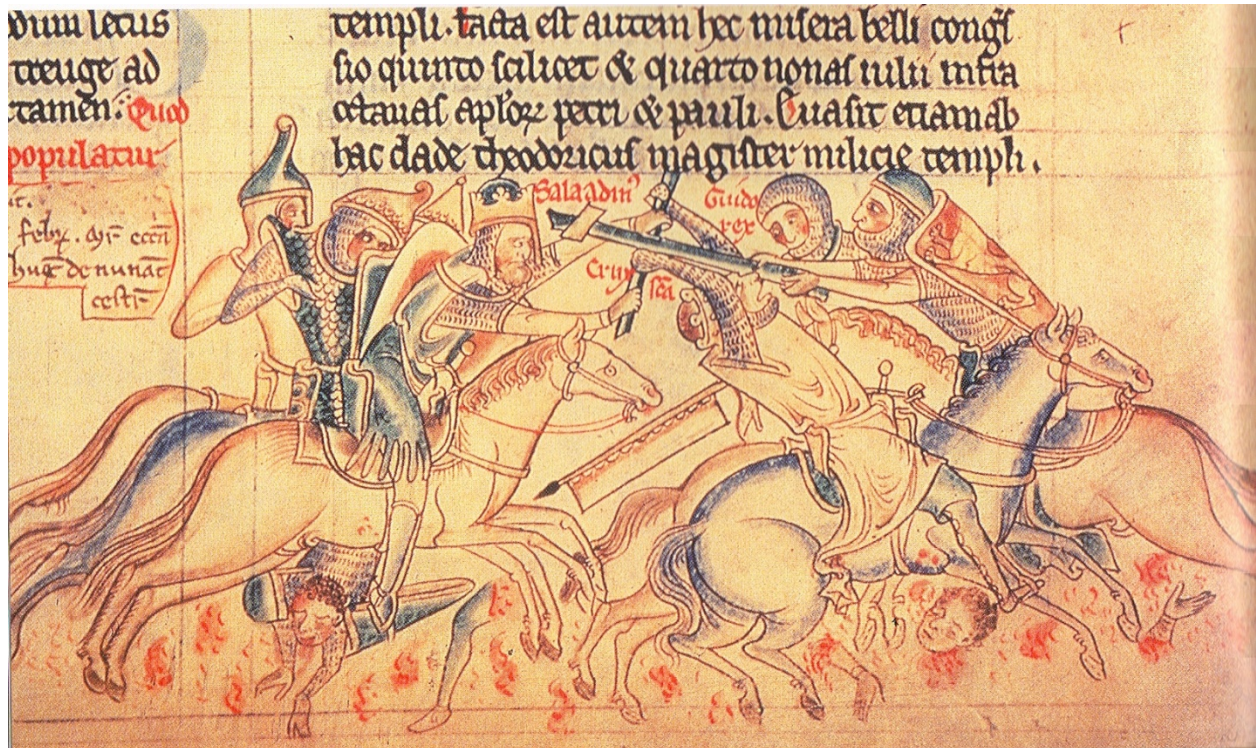 dium letus
treuge ad
tamen. Quod
populatur
templi. facta est autem hec misera belli congs
sio quinto scilicet & quarto nonas iulii infra
octauas aploꝝ petri & pauli. Euasit etiam ab
hac clade theodoricus magister milicie templi.
Salaadin
Guido
rex
Crux
sca